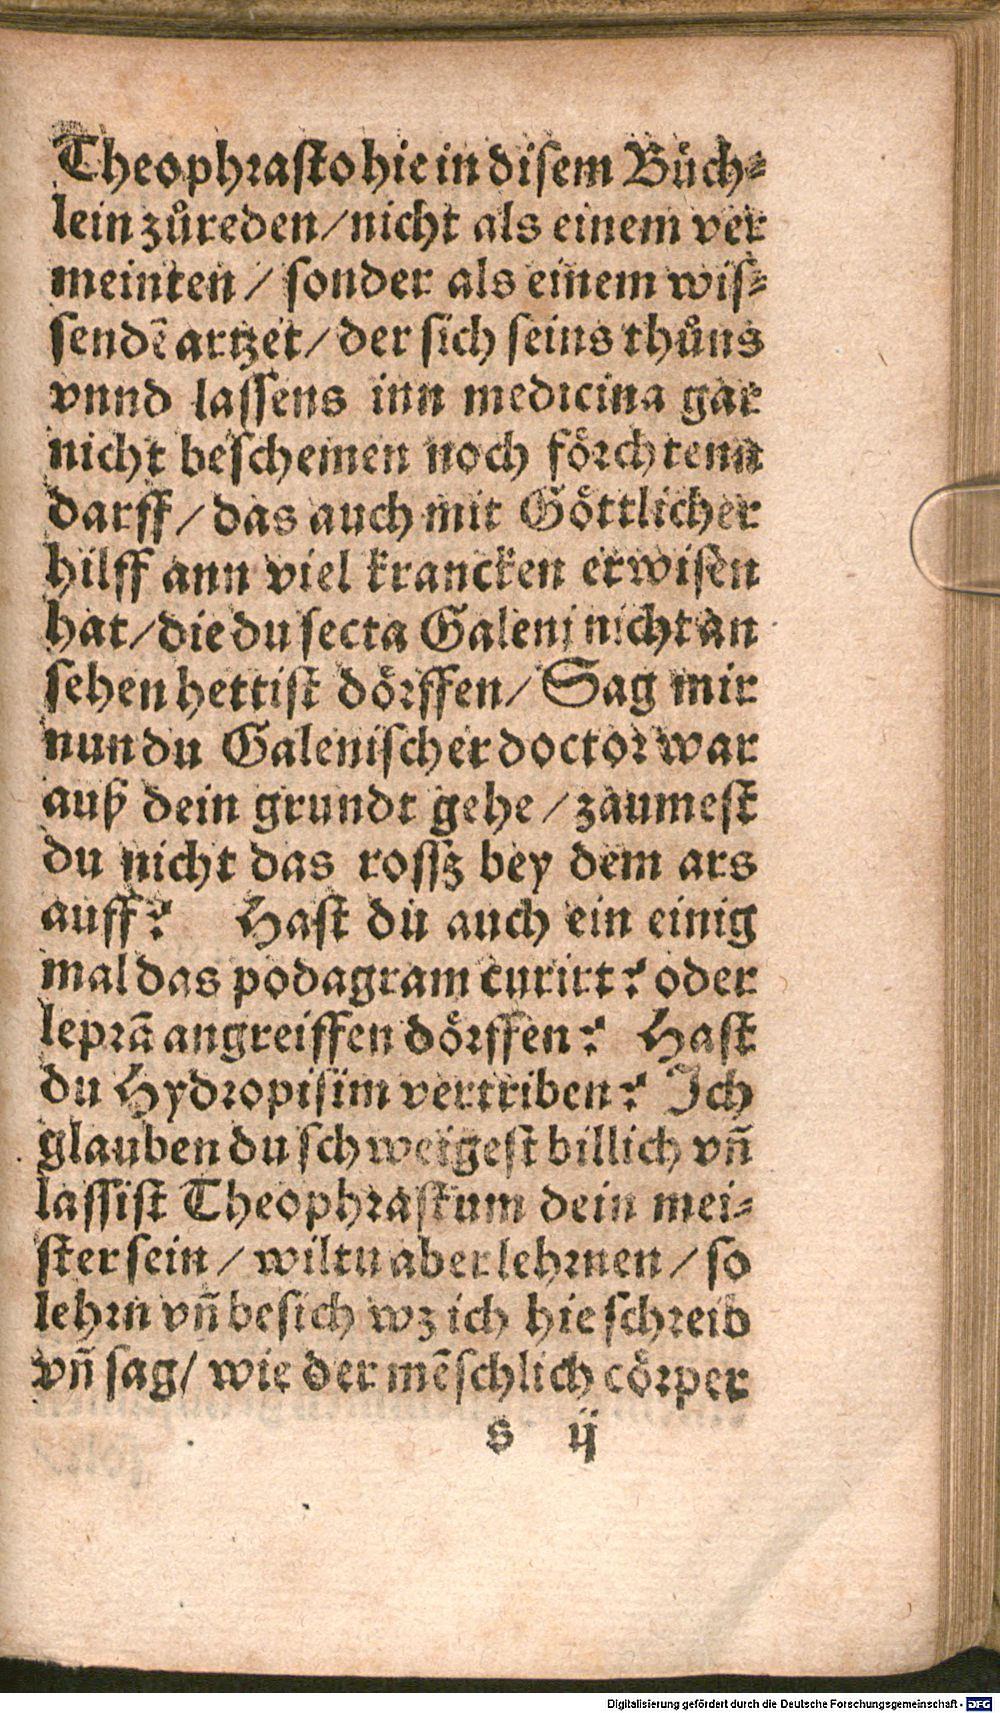 Theophrasto hie in disem Bůch⸗
lein zůreden/nicht als einem ver
meinten / sonder als einem wis⸗
sendē artzet/der sich seins thůns
vnnd lassens inn medicina gar
nicht beschemen noch förchtenn
darff/das auch mit Göttlicher
hilff ann viel krancken erwisen
hat/die du secta Galeni nicht an
sehen hettist dörffen/ Sag mir
nun du Galenischer doctor war
auß dein grundt gehe /zaumest
du nicht das rossz bey dem ars
auff? Hast du auch ein einig
mal das podagram curirt? oder
leprā angreiffen dörffen? Hast
du Hydropisim vertriben? Ich
glauben du schweigest billich vñ
lassist Theophrastum dein mei⸗
ster sein / wiltu aber lehrnen / so
lehrn vñ besich wz ich hie schreib
vñ sag/ wie der mēschlich cörper
s ij
Digitalisierung gefördert durch die Deutsche Forschungsgemeinschaft - DFG